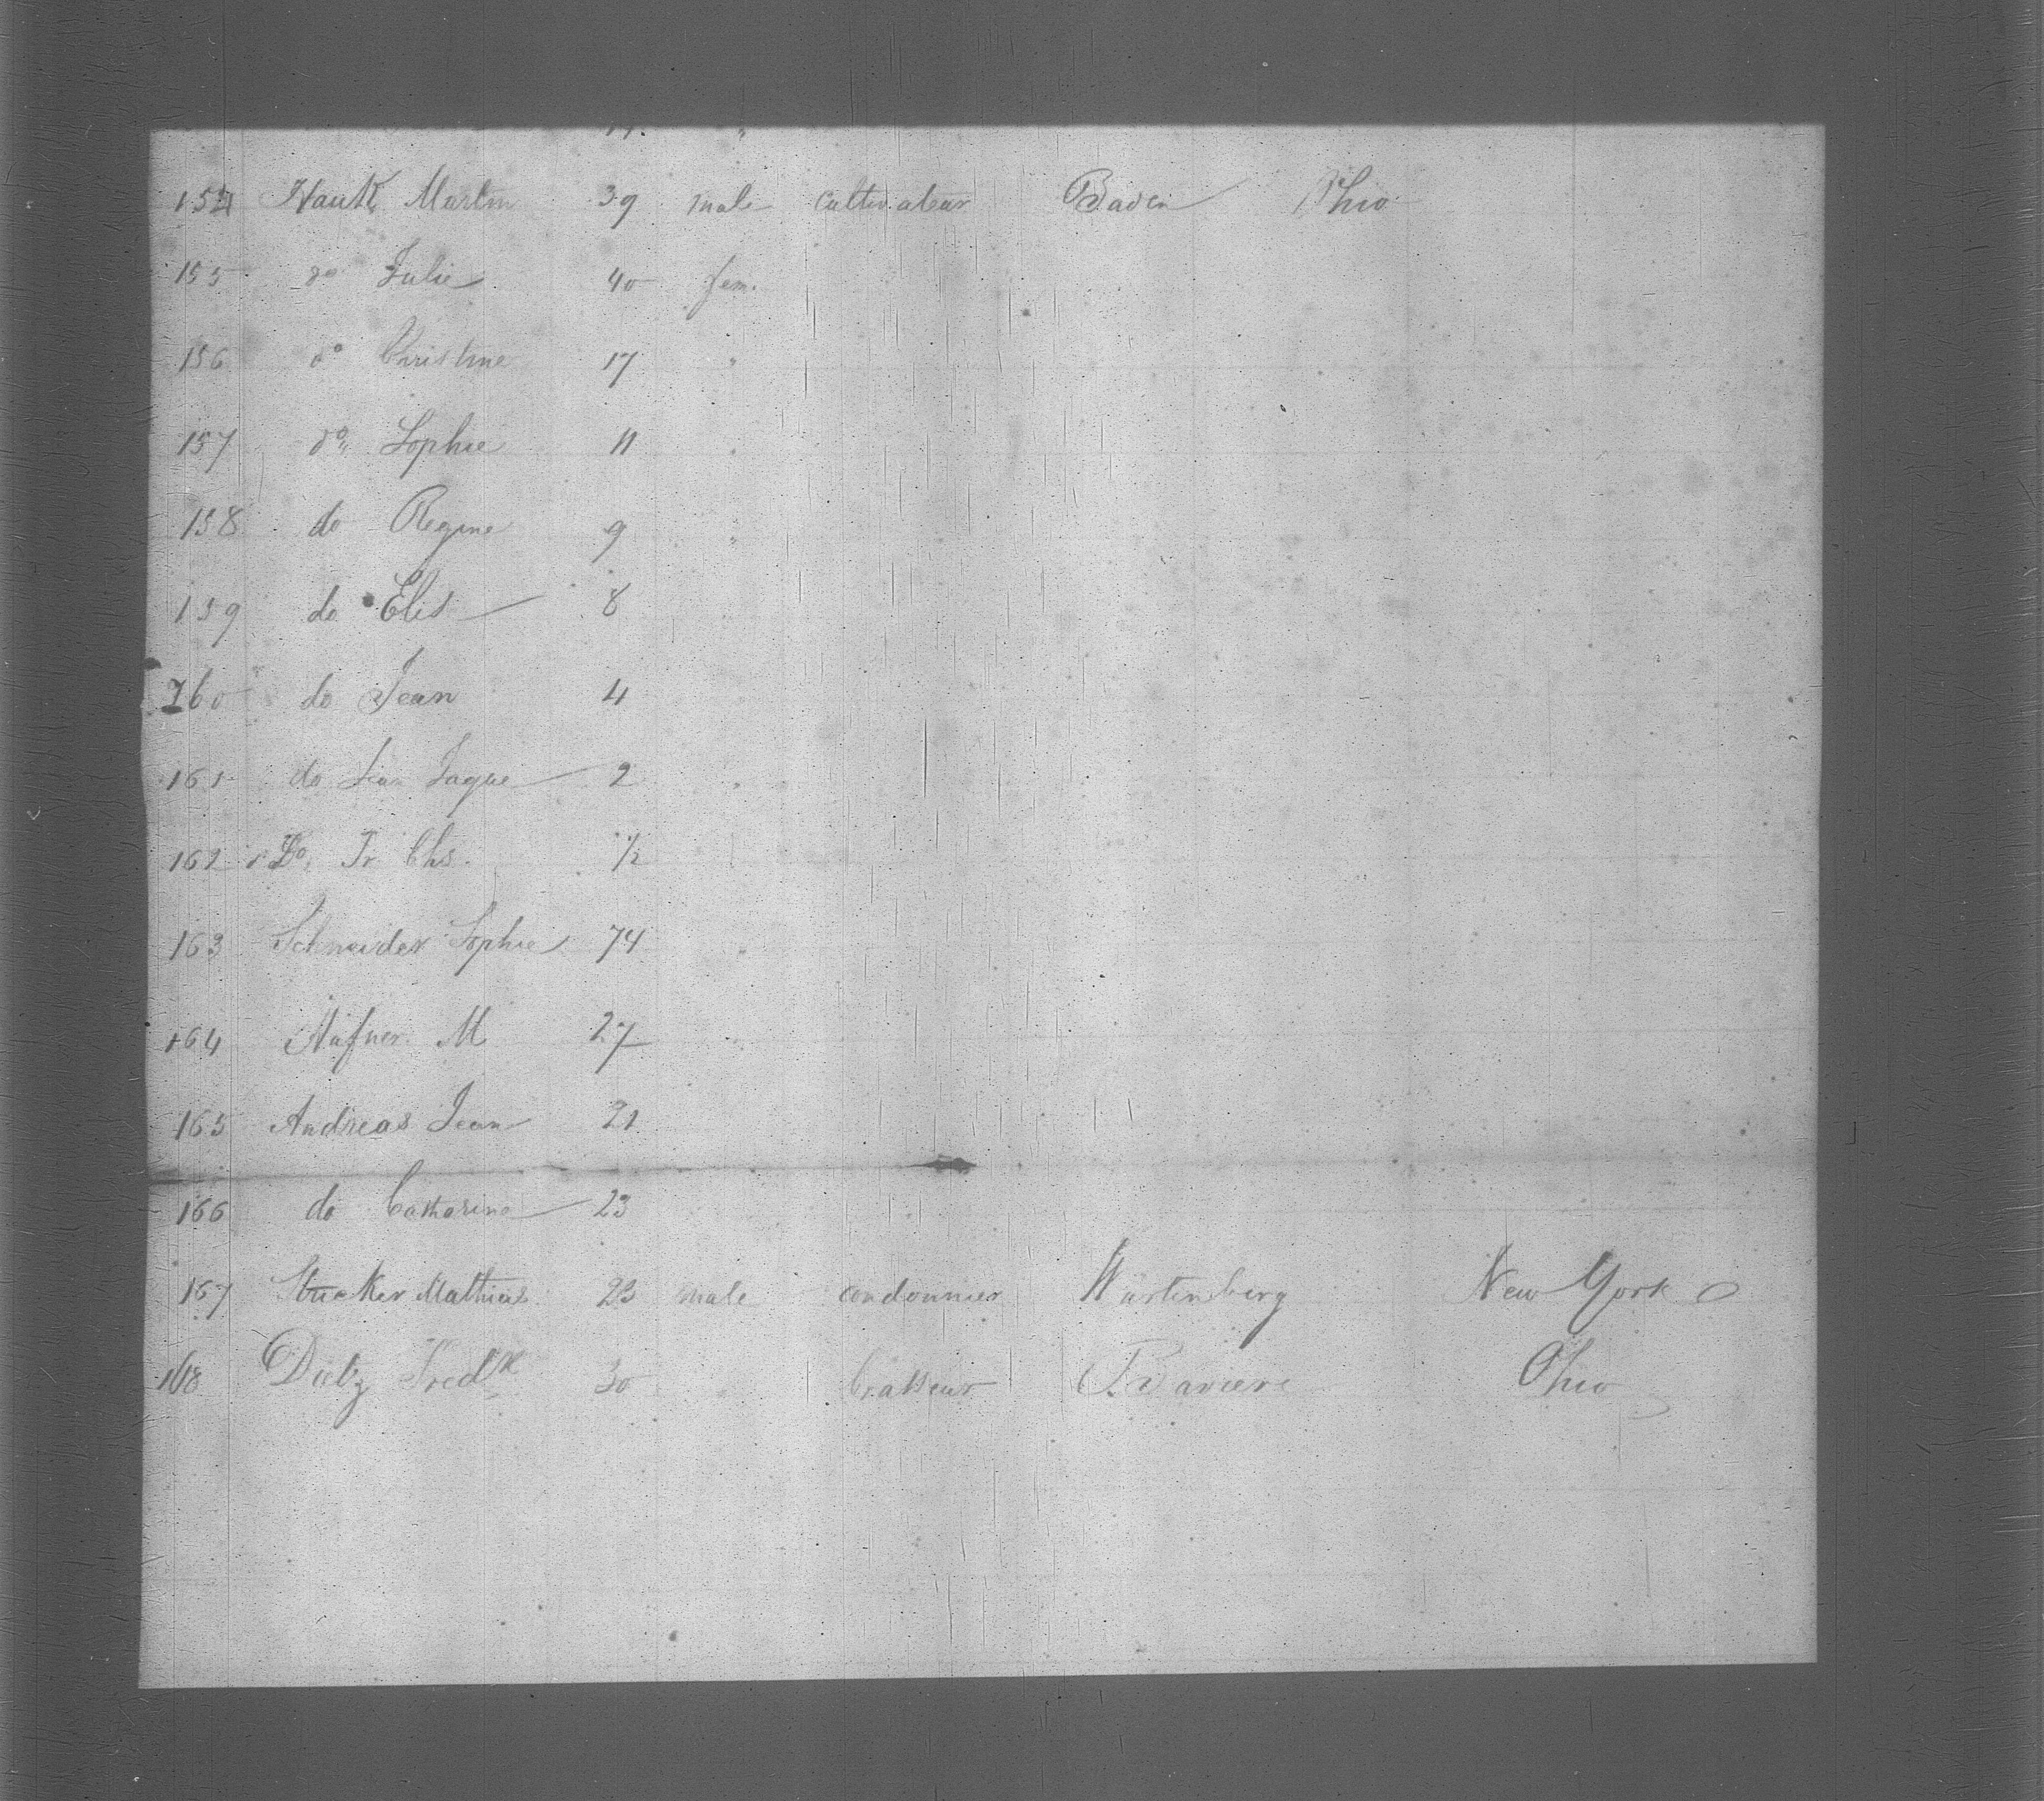 154 Hauk Martin 39 male cultivateur Baden Ohio
155 do Julie 40 fem.
156 do Christine 17 "
157 do Sophie 11 "
158 do Regine 9 "
159 do Elis 8
160 do Jean 4
161 do Jaque 2 "
162 Do Fr Chs. 1/2
163 Schneider Sophie 74 "
164 Hafner M 27
165 Andreas Jean 21
166 do Catharine 23
167 Stucker Mathias 23 male cordonnier Würtemberg New York
168 Dietz Fredk 30 " brasseur Baviere Ohio